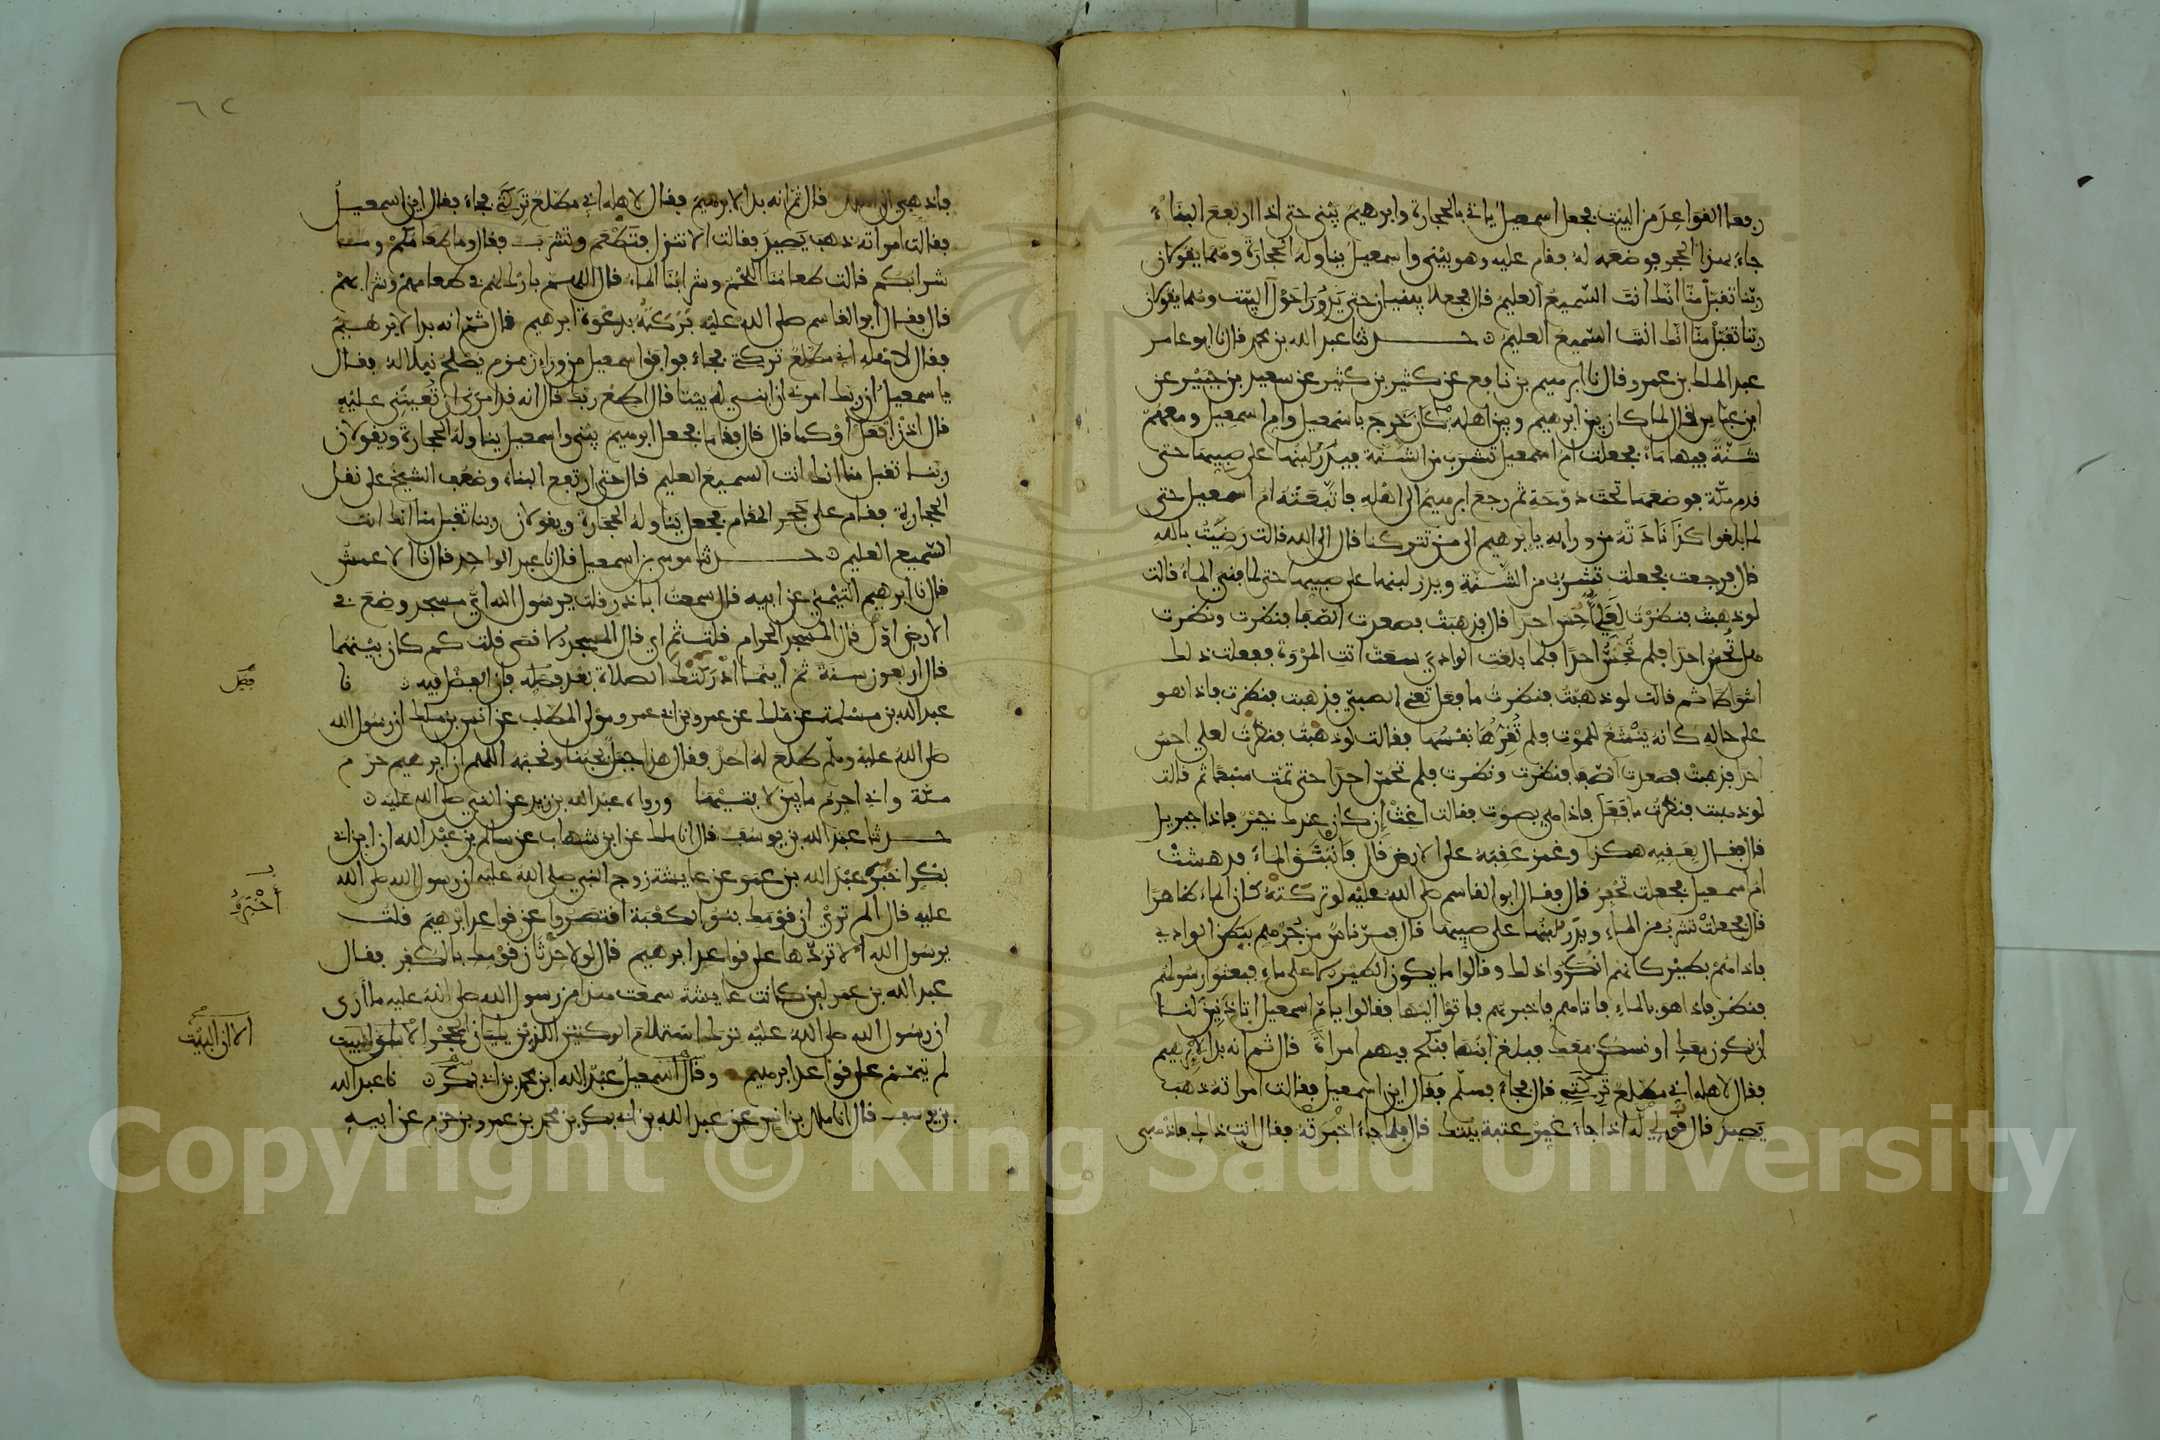 رفعا القواعد من البيت فجعل اسمعيل ياتي بالحجارة وابرهيم يبني حتى اذا ارتفع البناء
جاء بهذا الحجر فوضعه له فقام عليه وهو يبني واسمعيل يناوله الحجارة وهما يقولان
ربنا تقبل منا انك انت السميع العليم قال فجعلا يبنيان حتى يدورا حول البيت وهما يقولان
ربنا تقبل منا انك انت السميع العليم حدثنا عبد الله بن محمد قال نا ابو عامر
عبد الملك بن عمرو قال نا ابرهيم بن نافع عن كثير بن كثير عن سعيد بن جبير عن
ابن عباس قال لما كان بين ابرهيم وبين اهله ما كان خرج باسمعيل وام اسمعيل ومعهم
شنة فيها ماء فجعلت ام اسمعيل تشرب من الشنة فيدر لبنها على صبيها حتى
قدم مكة فوضعها تحت دوحة ثم رجع ابرهيم الى اهله فاتبعته ام اسمعيل حتى
لما بلغوا كدا نادته من ورائه يابرهيم الى من تتركنا قال الى الله قالت رضيت بالله
قال فرجعت فجعلت تشرب من الشنة ويدر لبنها على صبيها حتى لما فني الماء قالت
لو ذهبت فنظرت لعلي احس احدا قال فذهبت فصعدت الصفا فنظرت ونظرت
هل تحس احدا فلم تحس احدا فلما بلغت الوادي سعت اتت المروة ففعلت ذلك
اشواطا ثم قالت لو ذهبت فنظرت ما فعل تعني الصبي فذهبت فنظرت فاذا هو
على حاله كانه ينشغ للموت فلم تقرها نفسها فقالت لو ذهبت فنظرت لعلي احس
احدا فذهبت فصعدت الصفا فنظرت ونظرت فلم تحس احدا حتى تمت سبعا ثم قالت
لو ذهبت فنظرت ما فعل فاذا هي بصوت فقالت اغث ان كان عندك خير فاذا جبريل
قال فقال بعقبه هكذا وغمز عقبه على الارض قال فانبثق الماء فدهشت
ام اسمعيل فجعلت تحفر قال فقال ابو القاسم صلى الله عليه لو تركته كان الماء ظاهرا
قال فجعلت تشرب من الماء ويدر لبنها على صبيها قال فمر ناس من جرهم ببطن الوادي
فاذا هم بطير كانهم انكروا ذلك وقالوا ما يكون الطير الا على ماء فبعثوا رسولهم
فنظر فاذا هو بالماء فاتاهم فاخبرهم فاتوا اليها فقالوا يام اسمعيل اتاذنين لنا
ان نكون معك او نسكن معك فبلغ ابنها فنكح فيهم امراة قال ثم انه بدا لابرهيم
فقال لاهله اني مطلع تركتي قال فجاء فسلم فقال اين اسمعيل فقالت امراته ذهب
يصيد قال قولي له اذا جاء غير عتبة بيتك قال فلما جاء اخبرته فقال انت ذاك فاذهبي
٦٢
فاذهبي الى اهلك قال ثم انه بدا لابرهيم فقال لاهله اني مطلع تركتي فجاء فقال اين اسمعيل
فقالت امراته ذهب يصيد فقالت الا تنزل فتطعم وتشرب فقال وما طعامكم وما
شرابكم قالت طعامنا اللحم وشرابنا الماء قال اللهم بارك لهم في طعامهم وشرابهم
قال فقال ابو القاسم صلى الله عليه بركة بدعوة ابرهيم قال ثم انه بدا لابرهيم
فقال لاهله اني مطلع تركتي فجاء فوافق اسمعيل من وراء زمزم يصلح نبلا له فقال
ياسمعيل ان ربك امرني ان ابني له بيتا قال اطع ربك قال انه قد امرني ان تعينني عليه
قال اذن افعل او كما قال قال فقاما فجعل ابرهيم يبني واسمعيل يناوله الحجارة ويقولان
ربنا تقبل منا انك انت السميع العليم قال حتى ارتفع البناء وضعف الشيخ على نقل
الحجارة فقام على حجر المقام فجعل يناوله الحجارة ويقولان ربنا تقبل منا انك انت
السميع العليم حدثنا موسى بن اسمعيل قال نا عبد الواحد قال نا الاعمش
قال نا ابرهيم التيمي عن ابيه قال سمعت ابا ذر قلت يرسول الله اي مسجد وضع في
الارض اول قال المسجد الحرام قلت ثم اي قال المسجد الاقصى قلت كم كان بينهما
قال اربعون سنة ثم اينما ادركتك الصلاة بعد فصله فان الفضل فيه نا
فصل
عبد الله بن مسلمة عن ملك عن عمرو بن ابي عمرو مولى المطلب عن انس بن ملك ان رسول الله
صلى الله عليه وسلم طلع له احد فقال هذا جبل يحبنا ونحبه اللهم ان ابرهيم حرم
مكة واني احرم ما بين لابتيها ورواه عبد الله بن زيد عن النبي صلى الله عليه
حدثنا عبد الله بن يوسف قال انا ملك عن ابن شهاب عن سالم بن عبد الله ان ابن ابي
بكر اخبر عبد الله بن عمر عن عايشة زوج النبي صلى الله عليه ان رسول الله صلى الله
اخبره
عليه قال الم تري ان قومك بنوا الكعبة اقتصروا عن قواعد ابرهيم قلت
يرسول الله الا تردها على قواعد ابرهيم قال لولا حدثان قومك بالكفر فقال
عبد الله بن عمر لئن كانت عايشة سمعت هذا من رسول الله صلى الله عليه ما ارى
ان رسول الله صلى الله عليه ترك استلام الركنين اللذين يليان الحجر الا ان البيت
الا ان البيت
لم يتمم على قواعد ابرهيم وقال اسمعيل عبد الله ابن محمد بن ابي بكر نا عبد الله
بن يوسف قال انا ملك بن انس عن عبد الله بن ابي بكر بن محمد بن عمرو بن حزم عن ابيه
Copyright © King Saud University